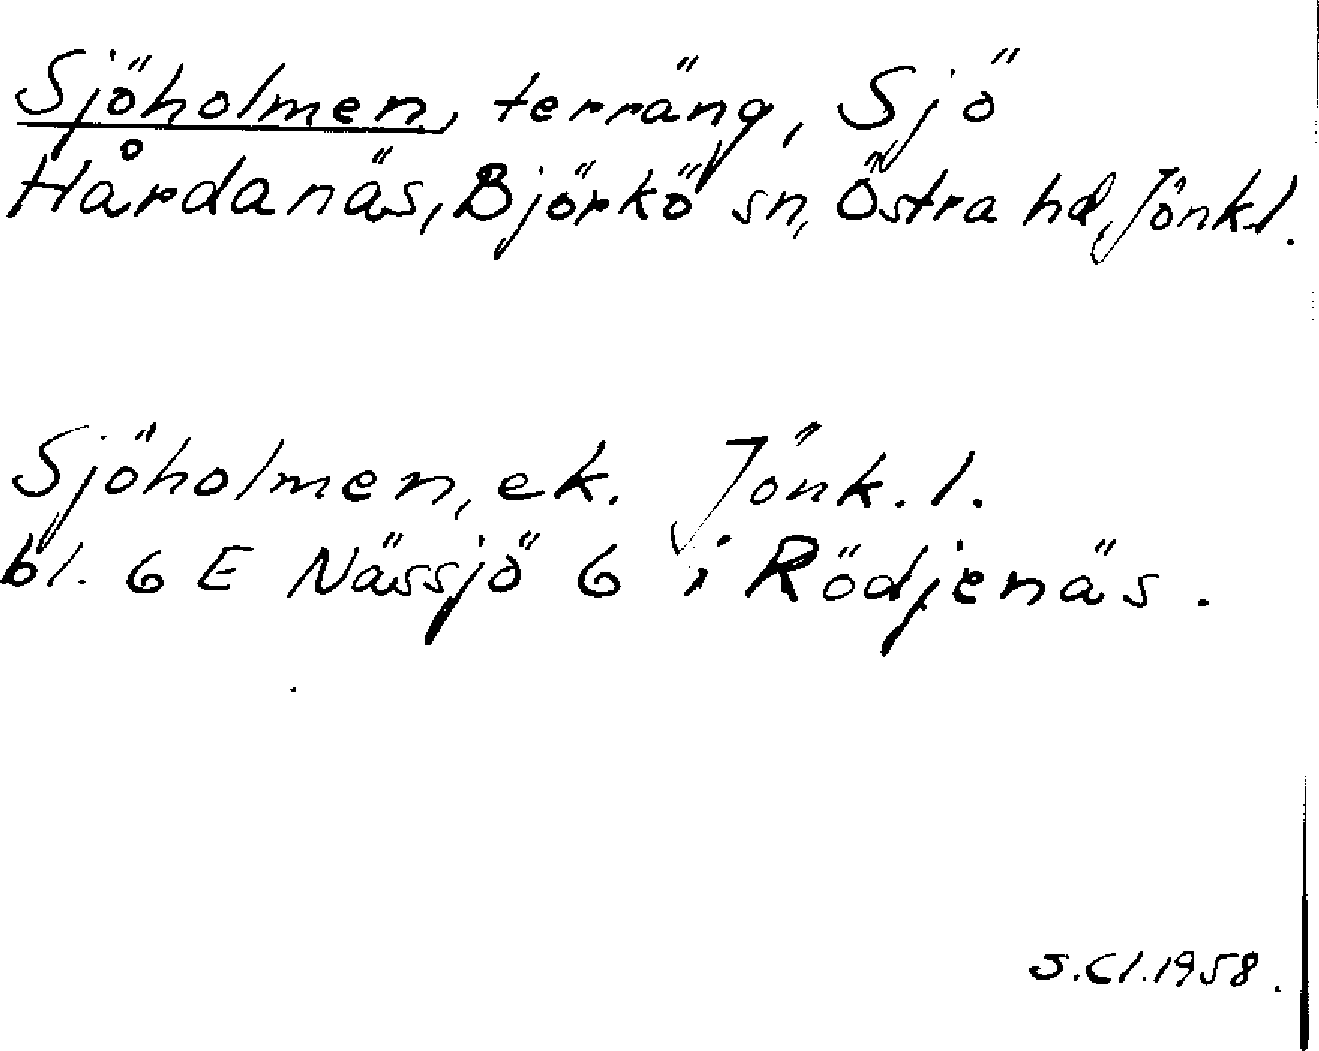 Sjöholmen, terräng, Sjö
Hårdanäs, Björkö sn, Östra hd, Jönk.l.
Sjöholmen, ek. Jönk.l.
bl. 6 E Nässjö 6 i Rödjenäs.
S.Cl.1958.